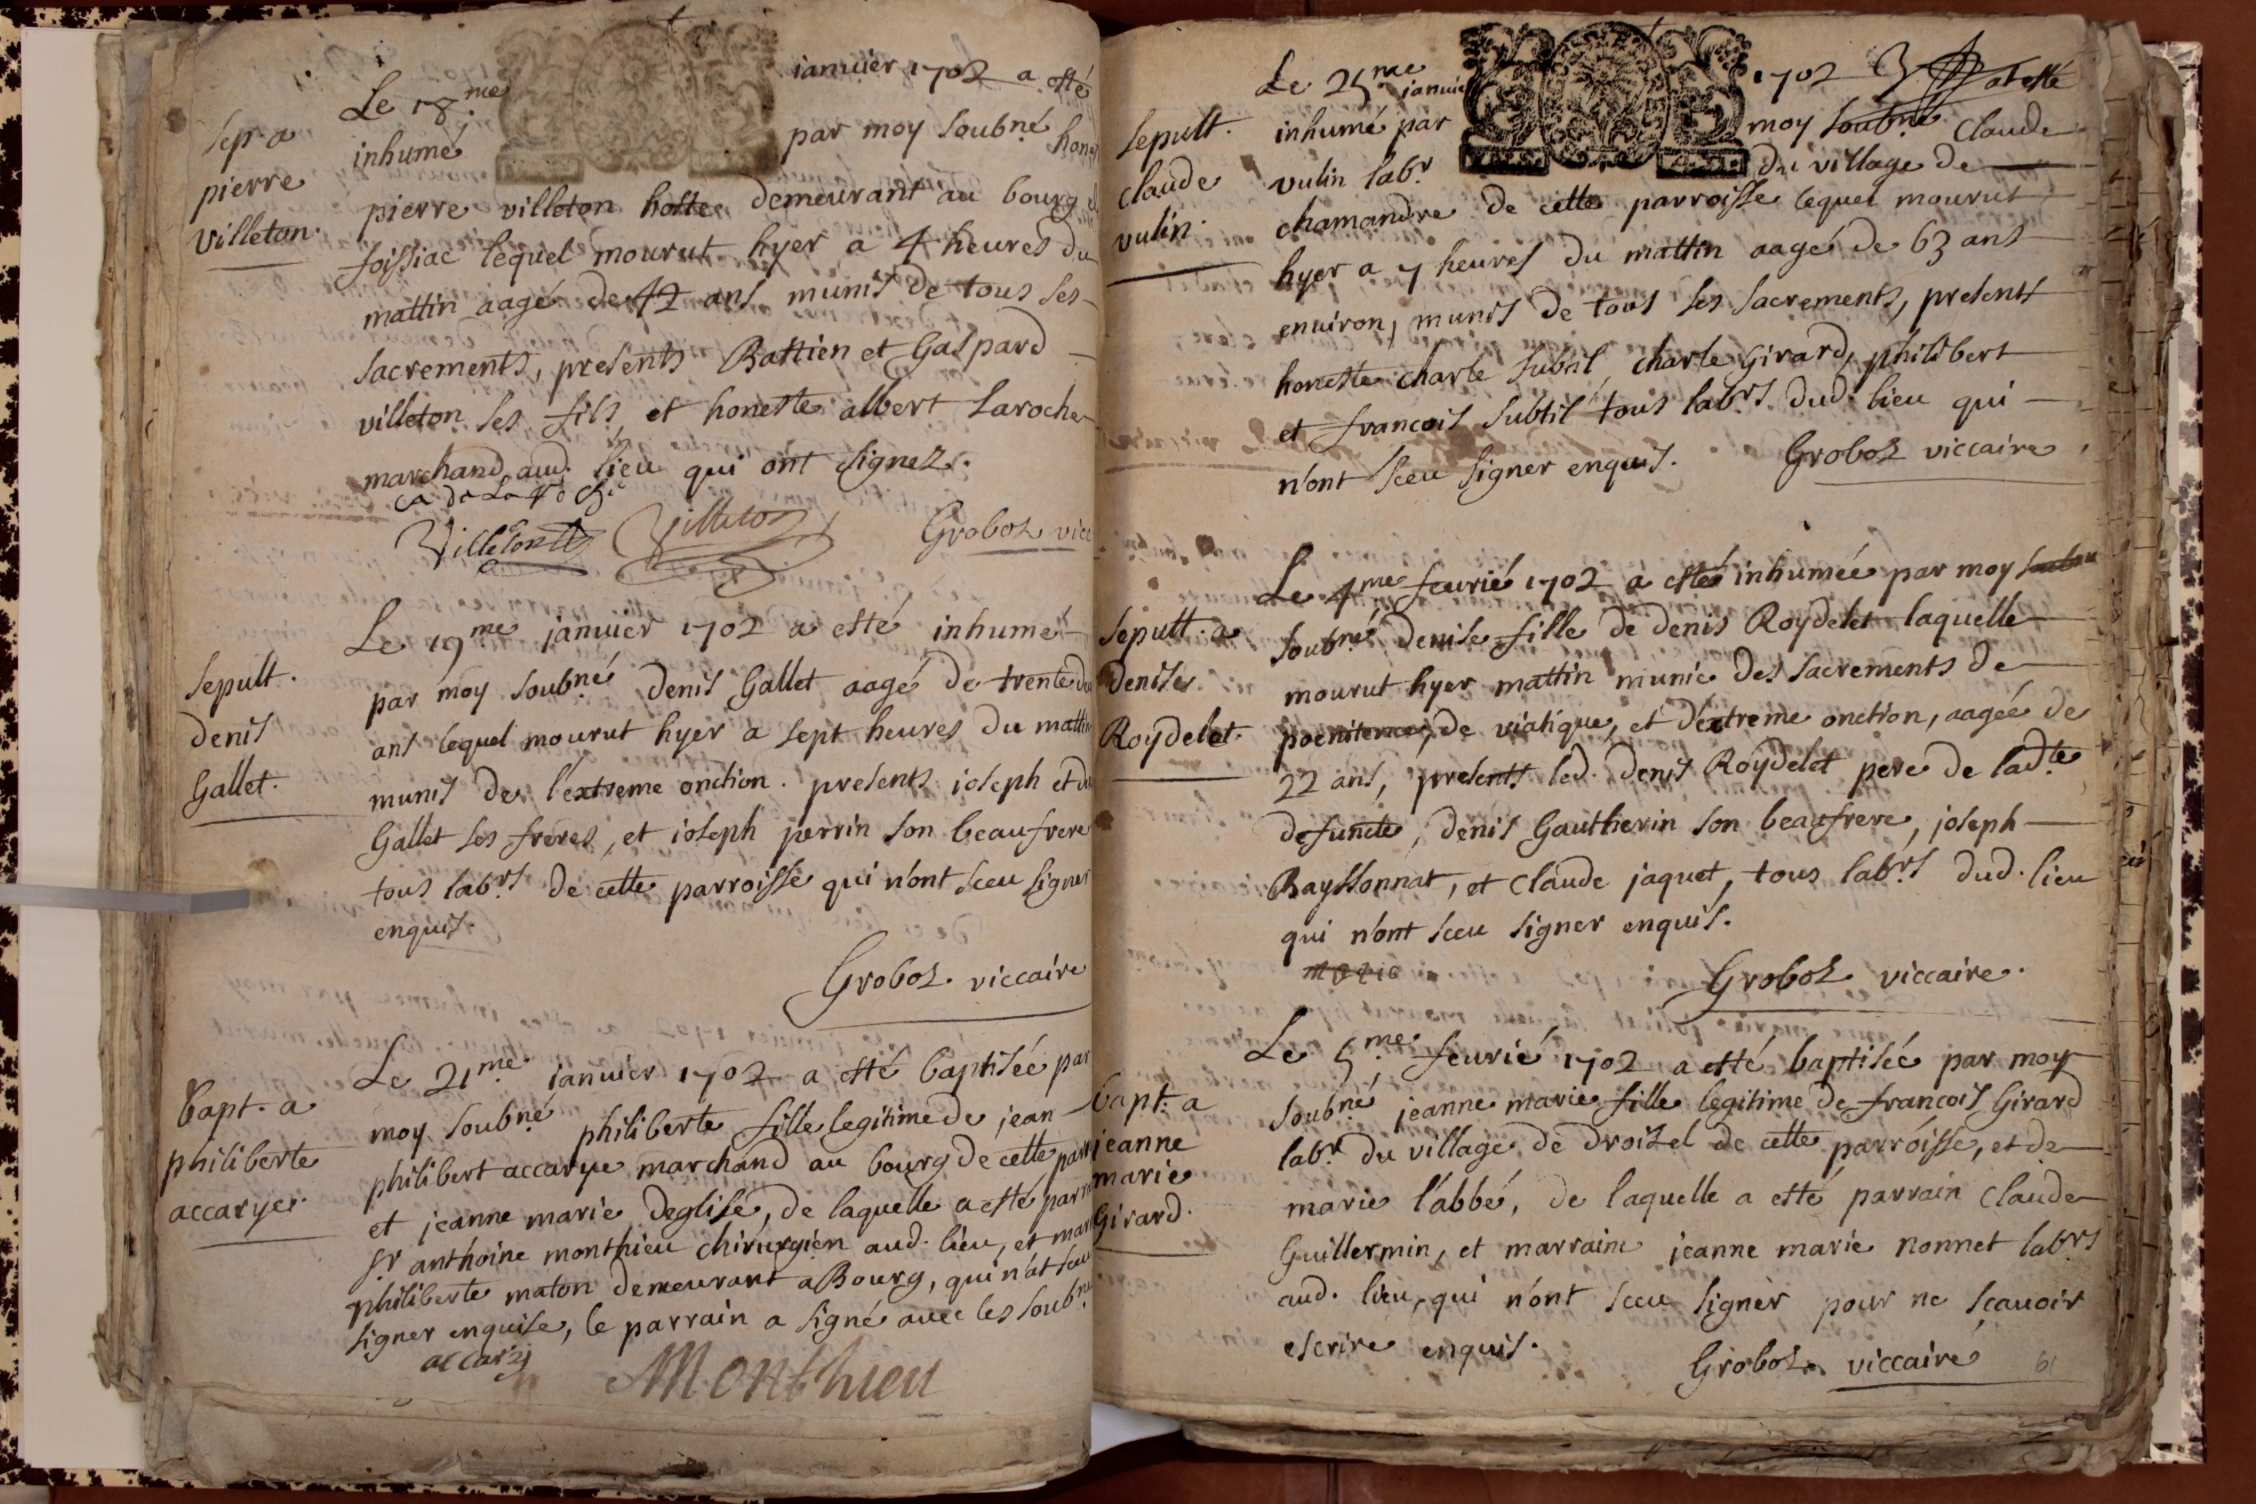 Sep. a
pierre
villeton.
Le 18.me janvier 1702 a esté
inhumé par moy soubné
pierre villeton hoste demeurant au bourg
foissiac lequel mourut hyer a 4 heures du
mattin aagé de 42 ans munis de tous ses
sacrements, presents Bastien et Gaspard
villeton ses fils et honeste albert Laroche
marchand aud. lieu qui ont signez.
Villeton Villeton Groboz vicc
Sepult.
denis
Gallet.
Le 19me janvier 1702 a esté inhumé
par moy soubné denis Gallet aagé de trente
ans lequel mourut hyer a sept heures du mattin
munis de l'extreme onction. presents joseph et
Gallet ses freres, et joseph perrin son beaufrere
tous labrs de cette parroisse qui n'ont sceu signer
enquis.
Groboz. viccaire
bapt. a
philiberte
accarye.
Le 21me janvier 1702 a esté baptisée par
moy soubné philiberte fille legitime de jean
philibert accarye marchand au bourg de cette parr
et jeanne marie deglise, de laquelle a esté parrain
sr anthoine monthieu chirurgien aud. lieu, et marr
philiberte maton demeurant a Bourg, qui n'at sceu
signer enquise, le parrain a signé avec les soubné
accary Monthieu
Sepult.
claude
vulin.
Le 25me janvier 1702 at esté
inhumé par moy soubné Claude
vulin labr du village de
chamandre de cette parroisse lequel mourut
hyer a 7 heures du mattin aagé de 63 ans
environ, munis de tous ses sacrements, presents
honeste charle subtil charle Girard, philibert
et francois subtil tous labrs dud. lieu qui
n'ont sceu signer enquis. Groboz viccaire
Sepult. a
denise
Roydelet.
Le 4me feurié 1702 a estée inhumée par moy
soubné denise fille de denis Roydelet laquelle
mourut hyer mattin munie des sacrements de
poenitence, de viatique, et d'extreme onction, aagée de
22 ans, presents led. denis Roydelet pere de ladte
defuncte, denis Gautherin son beaufrere, joseph
Bayssonnat, et claude jaquet, tous labrs dud. lieu
qui n'ont sceu signer enquis.
Groboz viccaire.
bapt. a
jeanne
marie
Girard.
Le 5me feurié 1702 a esté baptisée par moy
soubné jeanne marie fille legitime de francois Girard
labr du village de droisel de cette parroisse, et de
marie l'abbé, de laquelle a esté parrain claude
Guillermin, et marraine jeanne marie nonnet labrs
aud. lieu, qui n'ont sceu signer pour ne scavoir
escrire enquis.
Groboz viccaire 61